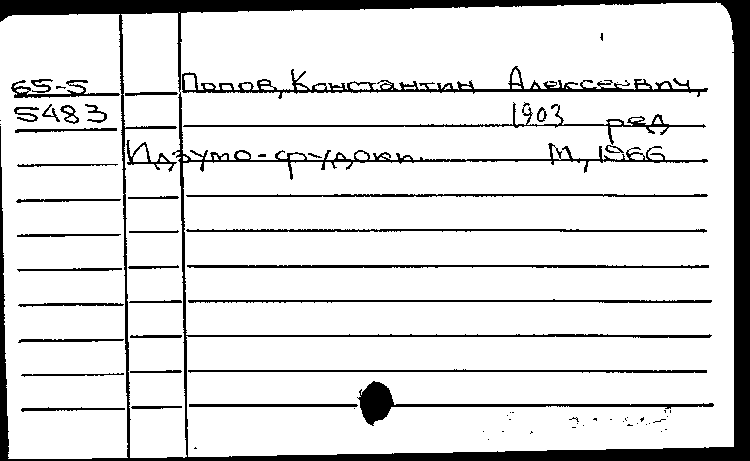 65-5 Попов, Константин Алексеевич,
5483 1903 ред
Идзумо-фудоки. М., 1966